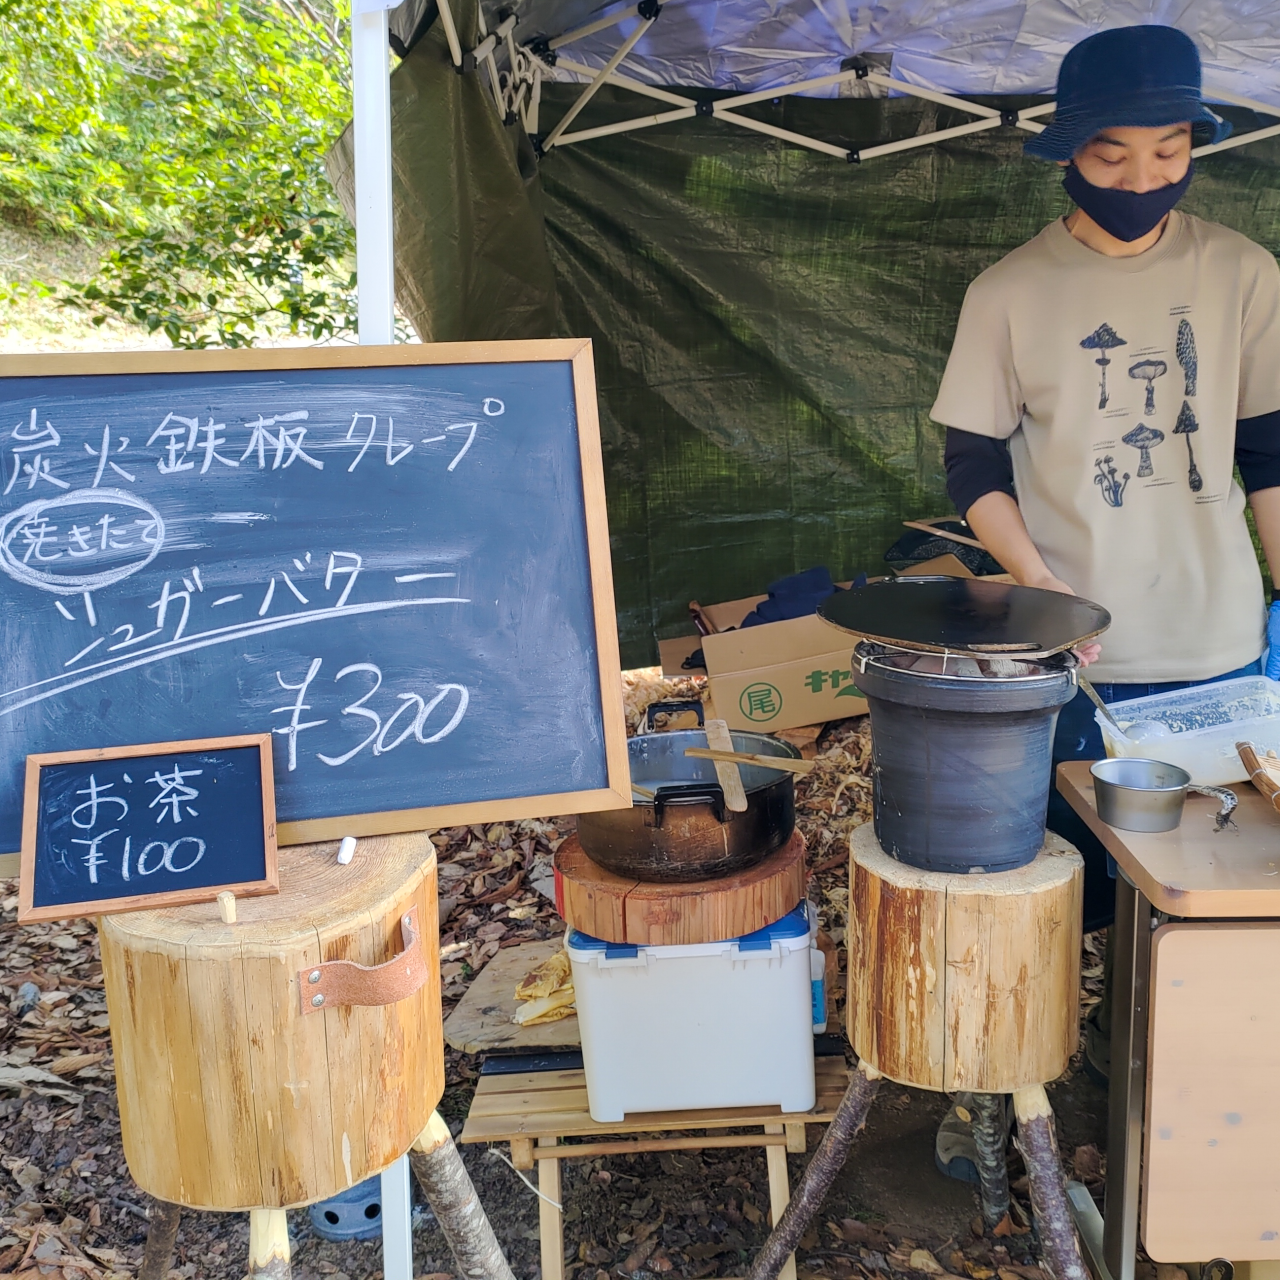 炭火鉄板クレープ
焼きたて
シュガーバター
¥300
お茶
¥100
尾
キャ